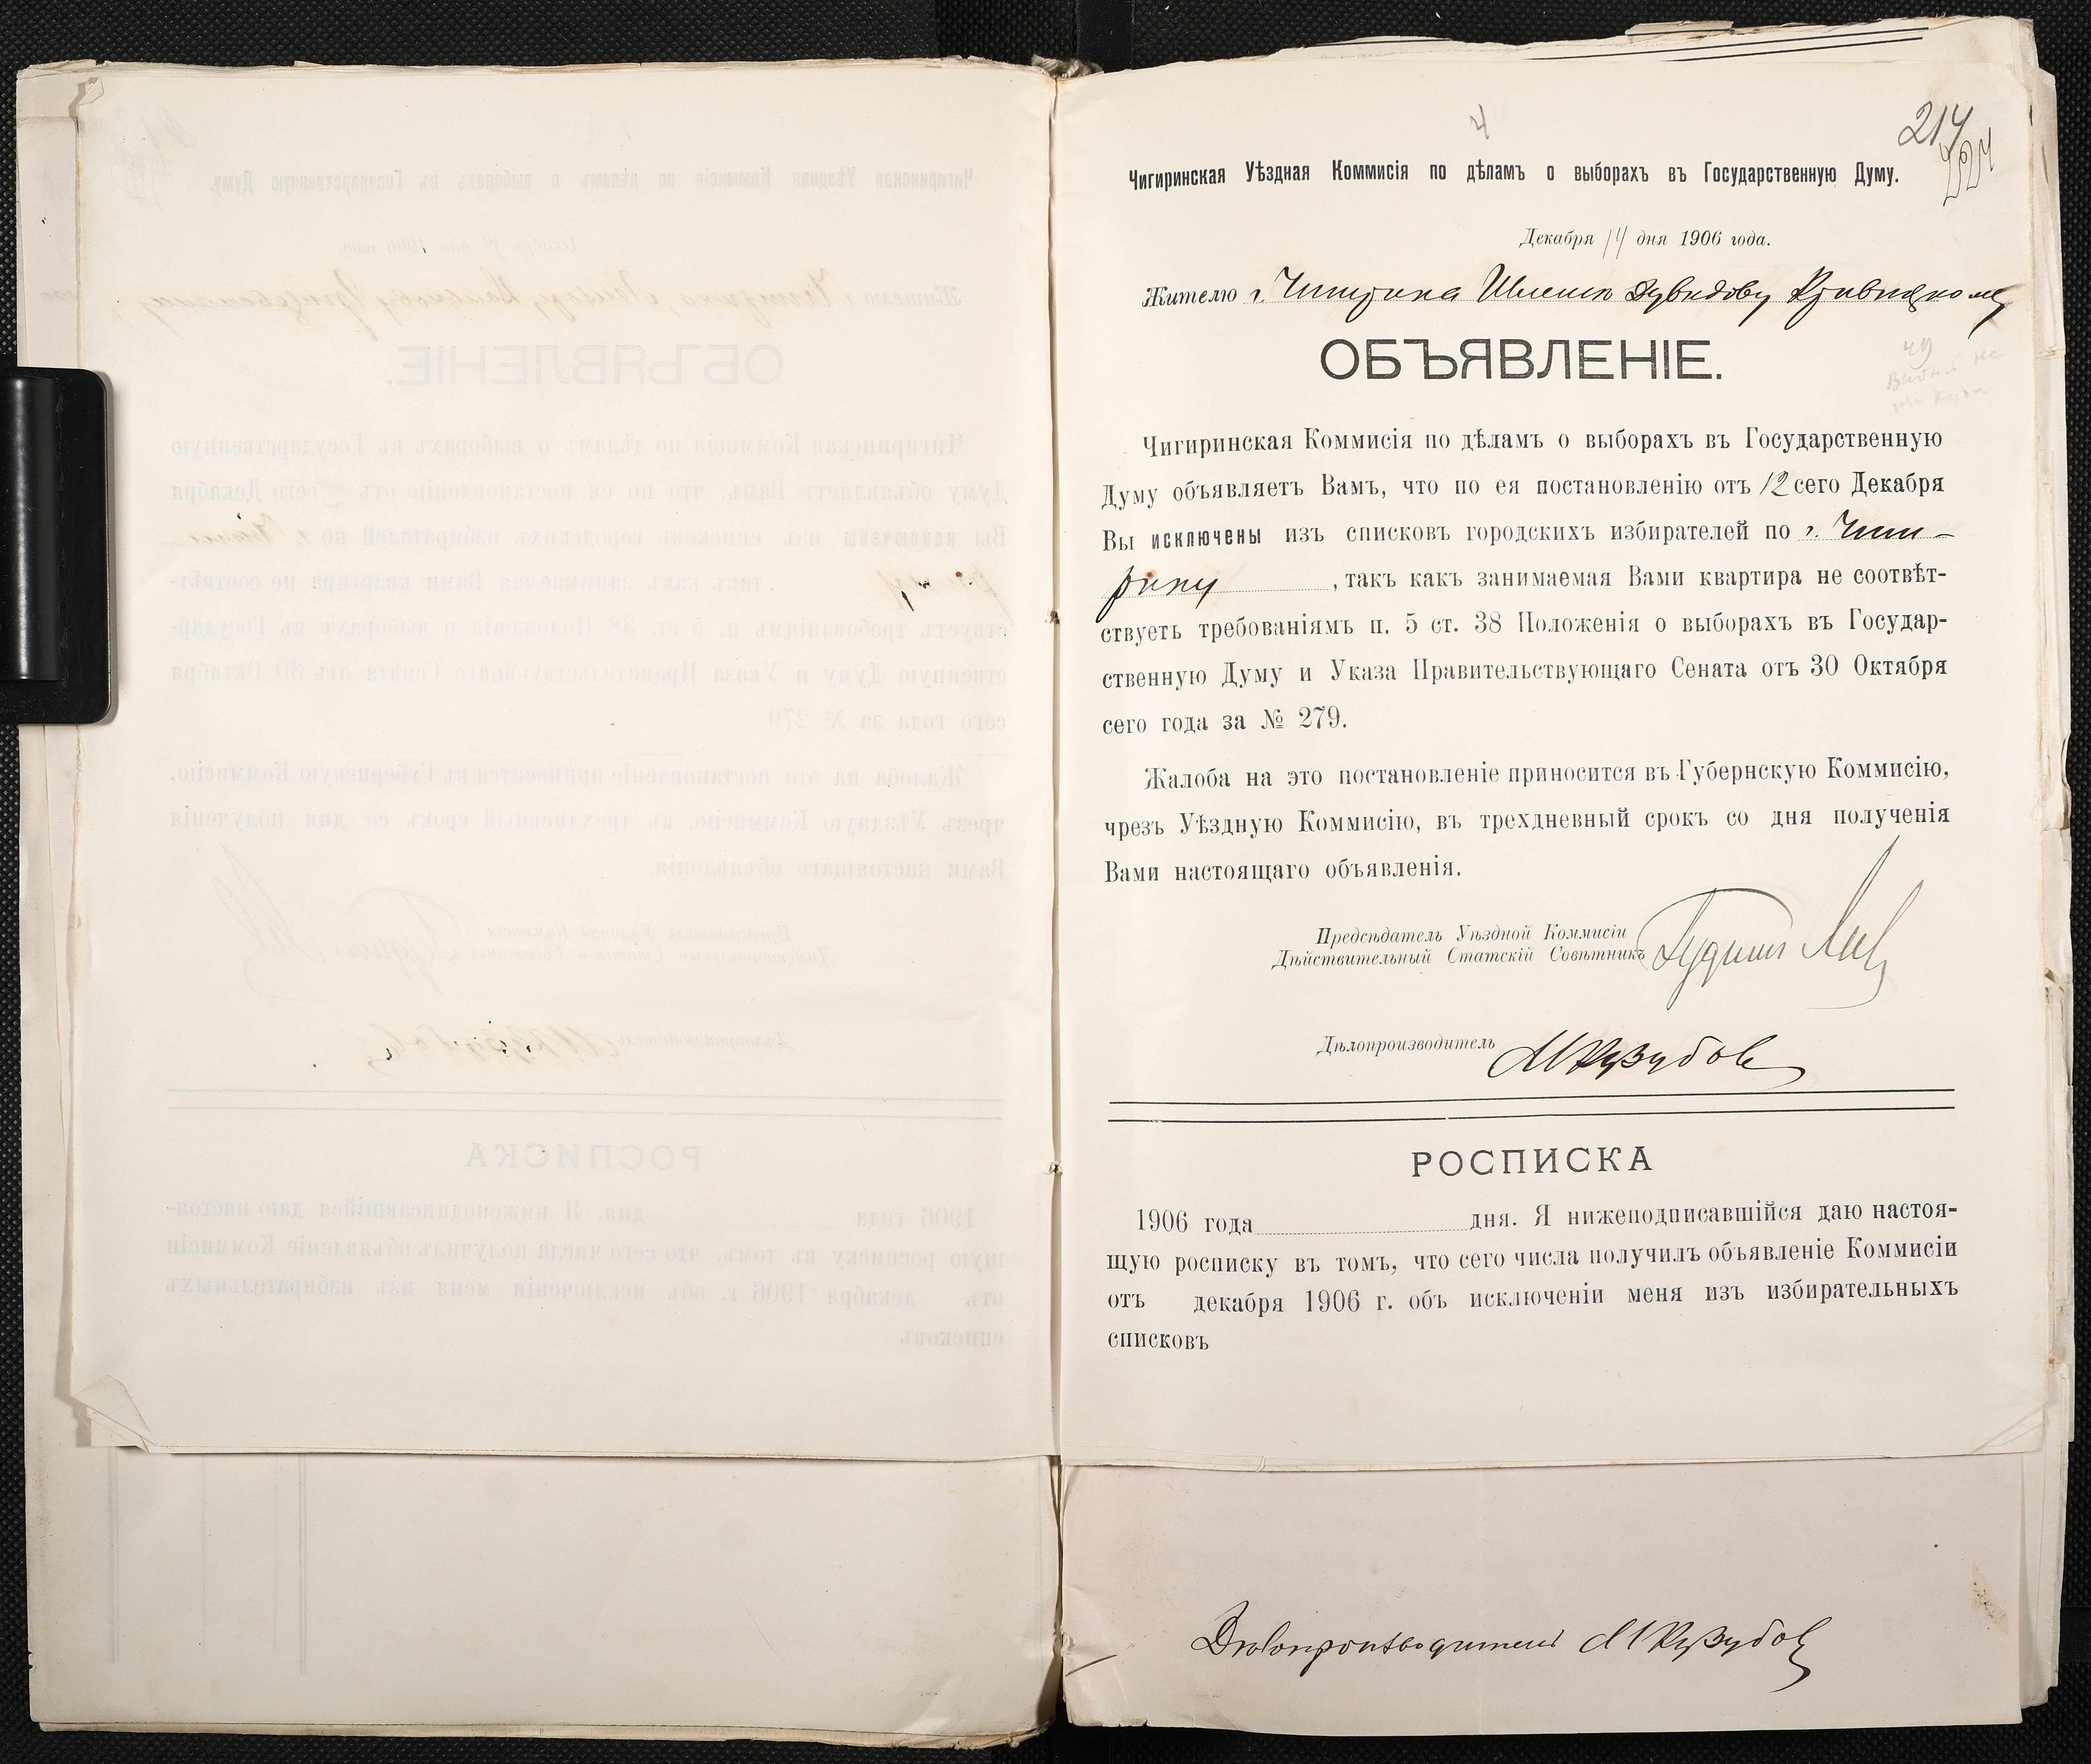 4
214
Чигиринская Уѣздная Коммисія по дѣламъ о выборахъ въ Государственную Думу.
Декабря 14 дня 1906 года.
Жителю г. Чигирина Шлемѣ Дувидову Кривицкому
ОБЪЯВЛЕНІЕ.
49
Чигиринская Коммисія по дѣламъ о выборахъ въ Государственную
Думу объявляетъ Вамъ, что по ея постановленію отъ 12 сего Декабря
Вы исключены изъ списковъ городскихъ избирателей по г. Чиги-
рину, такъ какъ занимаемая Вами квартира не соотвѣт-
ствуетъ требованіямъ п. 5 ст. 38 Положенія о выборахъ въ Государ-
ственную Думу и Указа Правительствующаго Сената отъ 30 Октября
сего года за № 279.
Жалоба на это постановленіе приносится въ Губернскую Коммисію,
чрезъ Уѣздную Коммисію, въ трехдневный срокъ со дня полученія
Вами настоящаго объявленія.
Предсѣдатель Уѣздной Коммисіи
Дѣйствительный Статскій Совѣтникъ
Дѣлопроизводитель
РОСПИСКА
1906 года дня. Я нижеподписавшійся даю настоя-
щую росписку въ томъ, что сего числа получилъ объявленіе Коммисіи
отъ декабря 1906 г. объ исключеніи меня изъ избирательныхъ
списковъ
Дѣлопроизводитель